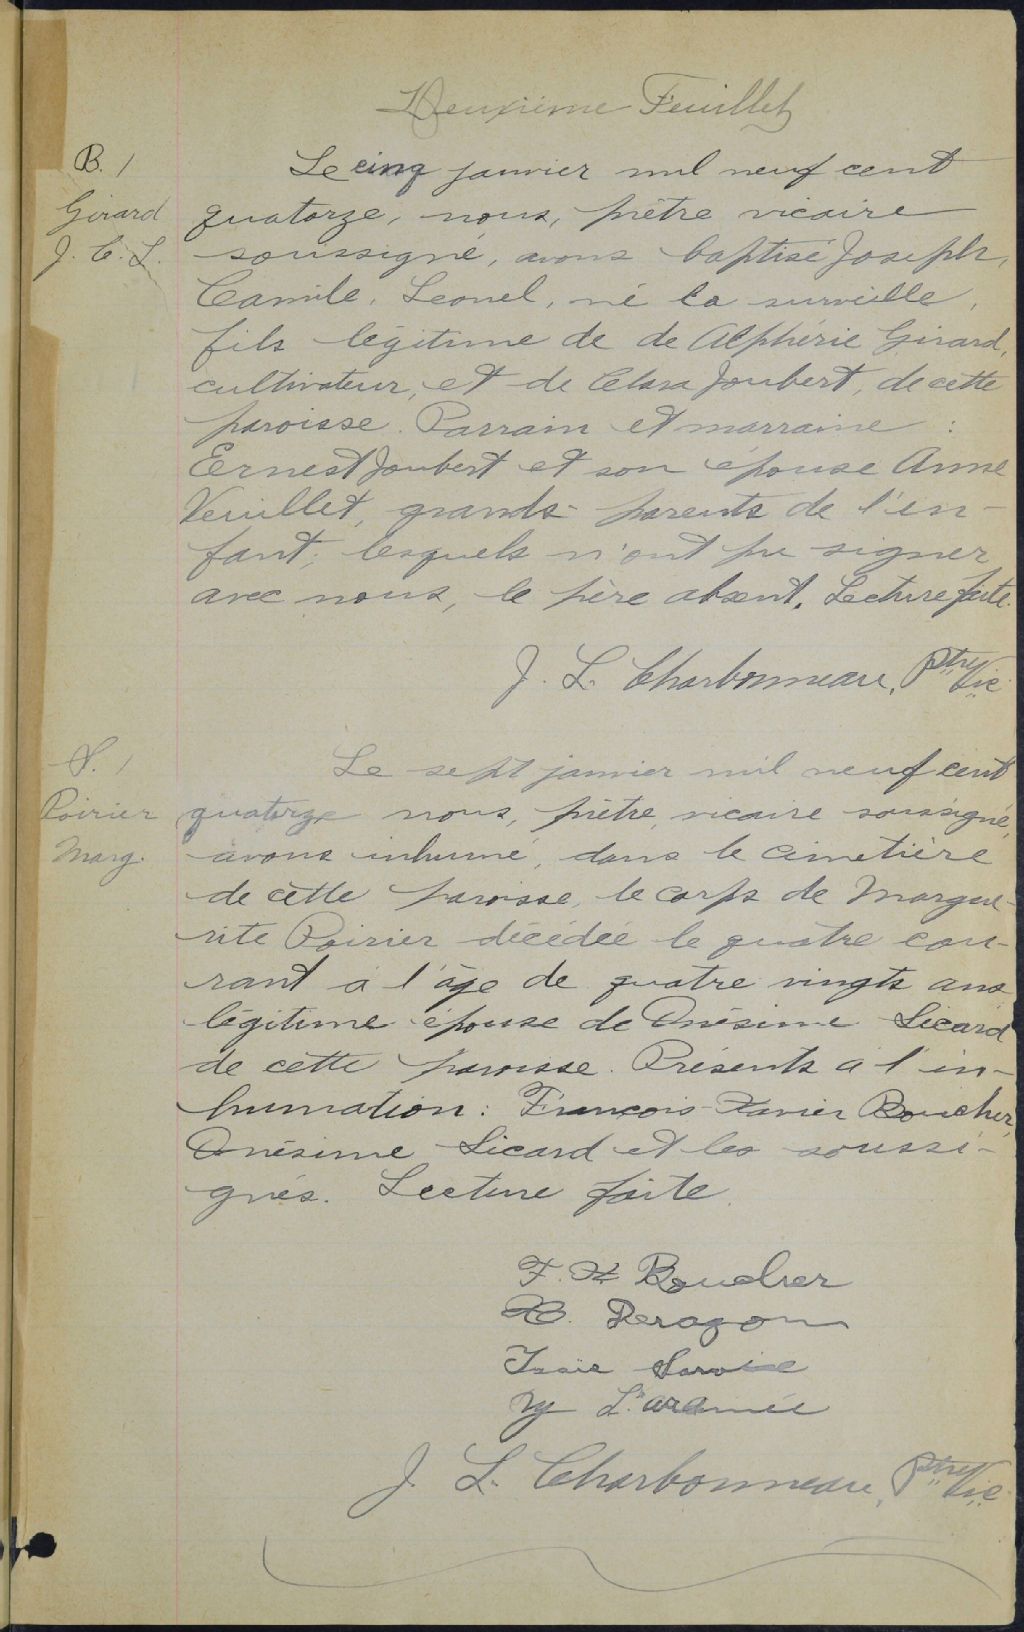 Deuxième Feuillet
B. /
Girard
J. C. L.
Le cinq janvier mil neuf cent
quatorze, nous, prêtre vicaire
soussigné, avons baptisé Joseph,
Camile, Leonel, né la surveille,
fils légitime de de Alphérie Girard,
cultivateur, et de Clara Joubert, de cette
paroisse. Parrain et marraine :
Ernest Joubert et son épouse Anne
Veuillet, grands-parents de l'en-
fant, lesquels n'ont pu signer
avec nous, le père absent. Lecture faite.
J. L. Charbonneau, Ptre Vic.
S. /
Poirier
Marg.
Le sept janvier mil neuf cent
quatorze nous, prêtre, vicaire soussigné,
avons inhumé, dans le cimetière
de cette paroisse, le corps de Margue-
rite Poirier décédée le quatre cou-
rant à l'âge de quatre vingts ans
légitime épouse de Onésime Sicard
de cette paroisse. Présents à l'in-
humation : François-Xavier Boucher,
Onésime Sicard et les soussi-
gnés. Lecture faite.
F. X Boucher
X. Deragon
Isaïe Savoie
L'aramée
J. L. Charbonneau, Ptre Vic.